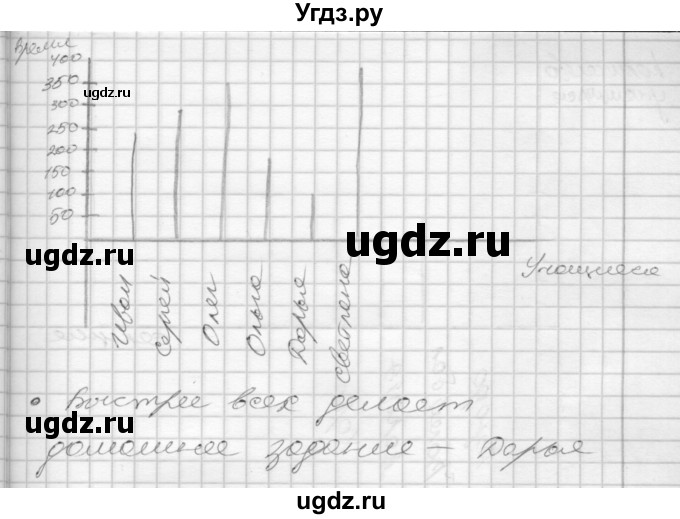 Угдз.ру
время
400
350
ugdz.ru
300
250
200
150
100
50
ugdz.ru
ugdz.ru
Учащиеся
Иван
Сергей
Олег
Ольга
Дарья
Светлана
ugdz.ru
• Быстрее всех делает
домашнее задание – Дарья
ugdz.ru
ugdz.ru